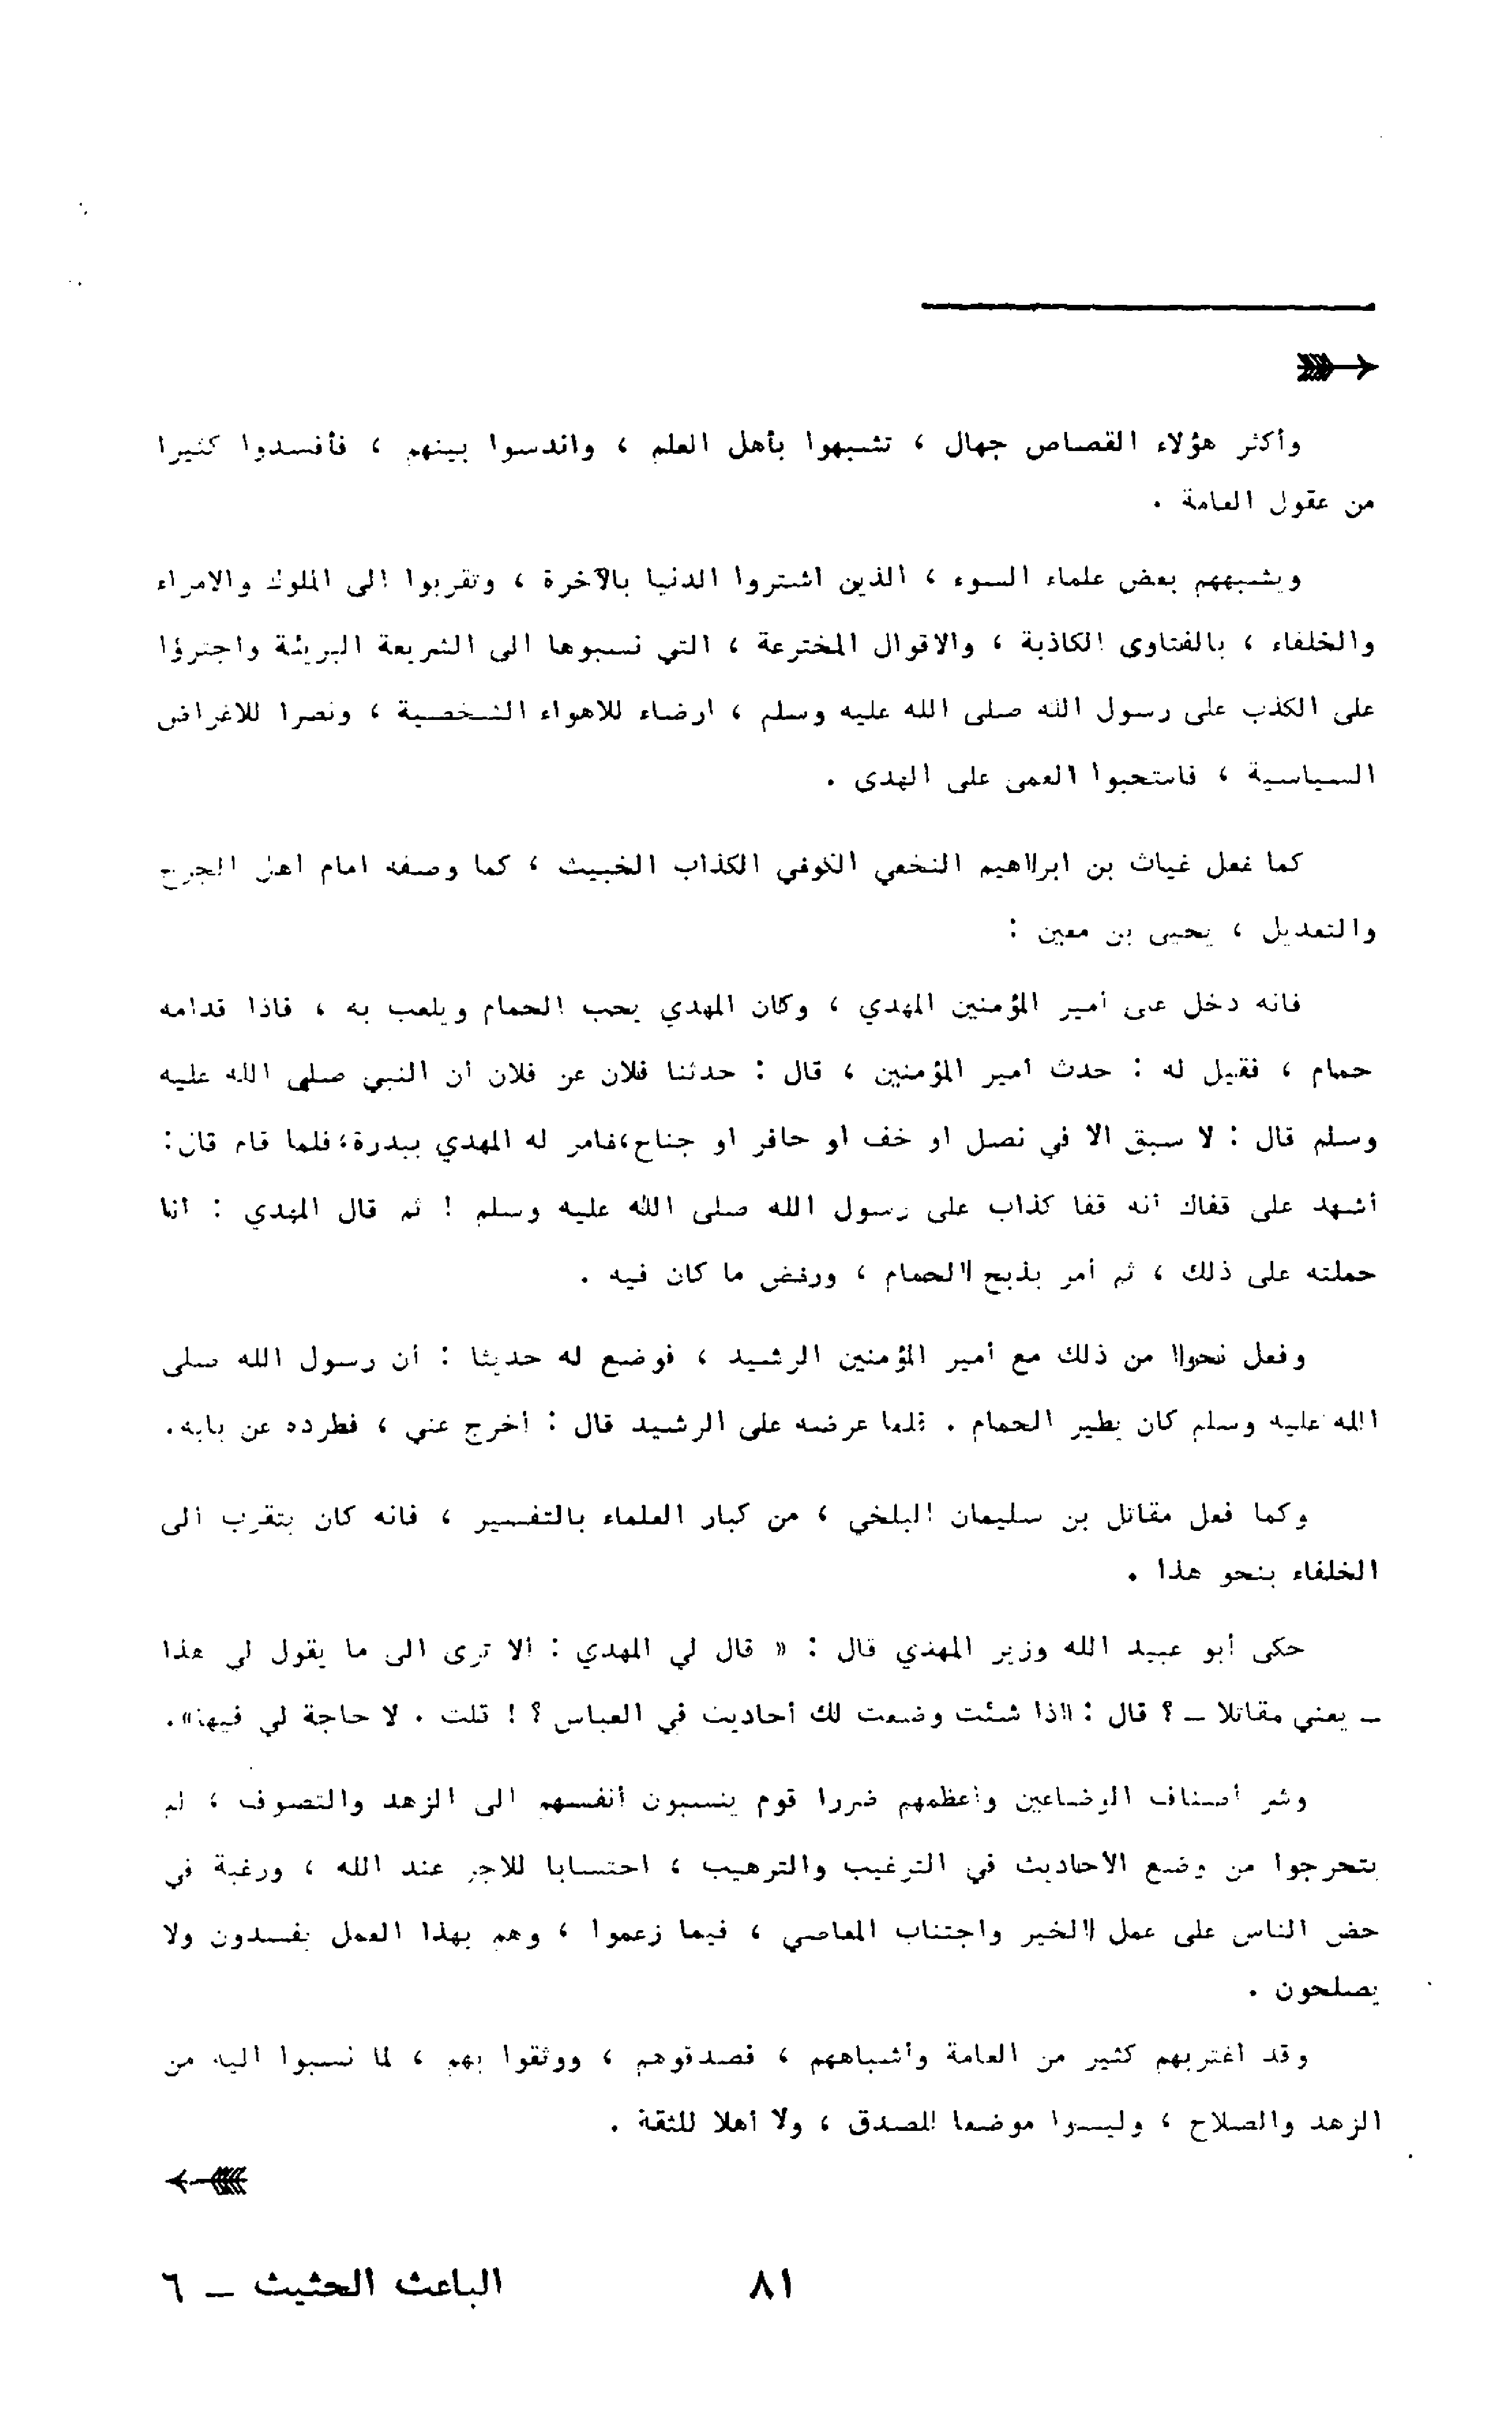 وأكثر هؤلاء القصاص جهال ، تشبهوا بأهل العلم ، واندسوا بينهم ، فأفسدوا كثيرا
من عقول العامة .
ويشبههم بعض علماء السوء ، الذين اشتروا الدنيا بالآخرة ، وتقربوا الى الملوك والامراء
والخلفاء ، بالفتاوى الكاذبة ، والاقوال المخترعة ، التي نسبوها الى الشريعة البريئة واجترؤا
على الكذب على رسول الله صلى الله عليه وسلم ، ارضاء للاهواء الشخصية ، ونصرا للاغراض
السياسية ، فاستحبوا العمى على الهدى .
كما فعل غياث بن ابراهيم النخعي الكوفي الكذاب الخبيث ، كما وصفه امام اهل الجرح
والتعديل ، يحيى بن معين :
فانه دخل على أمير المؤمنين المهدي ، وكان المهدي يحب الحمام ويلعب به ، فاذا قدامه
حمام ، فقيل له : حدث أمير المؤمنين ، قال : حدثنا فلان عن فلان أن النبي صلى الله عليه
وسلم قال : لا سبق الا في نصل او خف او حافر او جناح،فامر له المهدي ببدرة،فلما قام قال:
أشهد على قفاك أنه قفا كذاب على رسول الله صلى الله عليه وسلم ! ثم قال المهدي : انا
حملته على ذلك ، ثم أمر بذبح الحمام ، ورفض ما كان فيه .
وفعل نحوا من ذلك مع أمير المؤمنين الرشيد ، فوضع له حديثا : أن رسول الله صلى
الله عليه وسلم كان يطير الحمام . فلما عرضه على الرشيد قال : أخرج عني ، فطرده عن بابه.
وكما فعل مقاتل بن سليمان البلخي ، من كبار العلماء بالتفسير ، فانه كان يتقرب الى
الخلفاء بنحو هذا .
حكى أبو عبيد الله وزير المهدي قال : « قال لي المهدي : ألا ترى الى ما يقول لي هذا
ـ يعني مقاتلا ـ ؟ قال : اذا شئت وضعت لك أحاديث في العباس ؟ ! قلت . لا حاجة لي فيها».
وشر أصناف الوضاعين وأعظمهم ضررا قوم ينسبون أنفسهم الى الزهد والتصوف ، لم
يتحرجوا من وضع الاحاديث في الترغيب والترهيب ، احتسابا للاجر عند الله ، ورغبة في
حض الناس على عمل الخير واجتناب المعاصي ، فيما زعموا ، وهم بهذا العمل يفسدون ولا
يصلحون .
وقد اغتربهم كثير من العامة وأشباههم ، فصدقوهم ، ووثقوا بهم ، لما نسبوا اليه من
الزهد والصلاح ، وليسوا موضعا للصدق ، ولا أهلا للثقة .
٨١
الباعث الحثيث ـ ٦